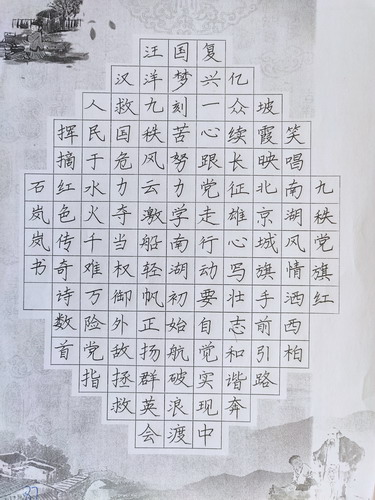 九秩党旗红
笑唱南湖风情洒西柏
坡霞映北京城旗手前引路
亿众续长征雄心写壮志和谐奔
复兴一心跟党走行动要自觉实现中
国梦刻苦努力学南湖初始航破浪渡
汪洋九秩风云激船轻帆正扬群英会
汉救国危力夺当权御外敌拯救
人民于水火千难万险党指
挥摘红色传奇诗数首
石岚岚书